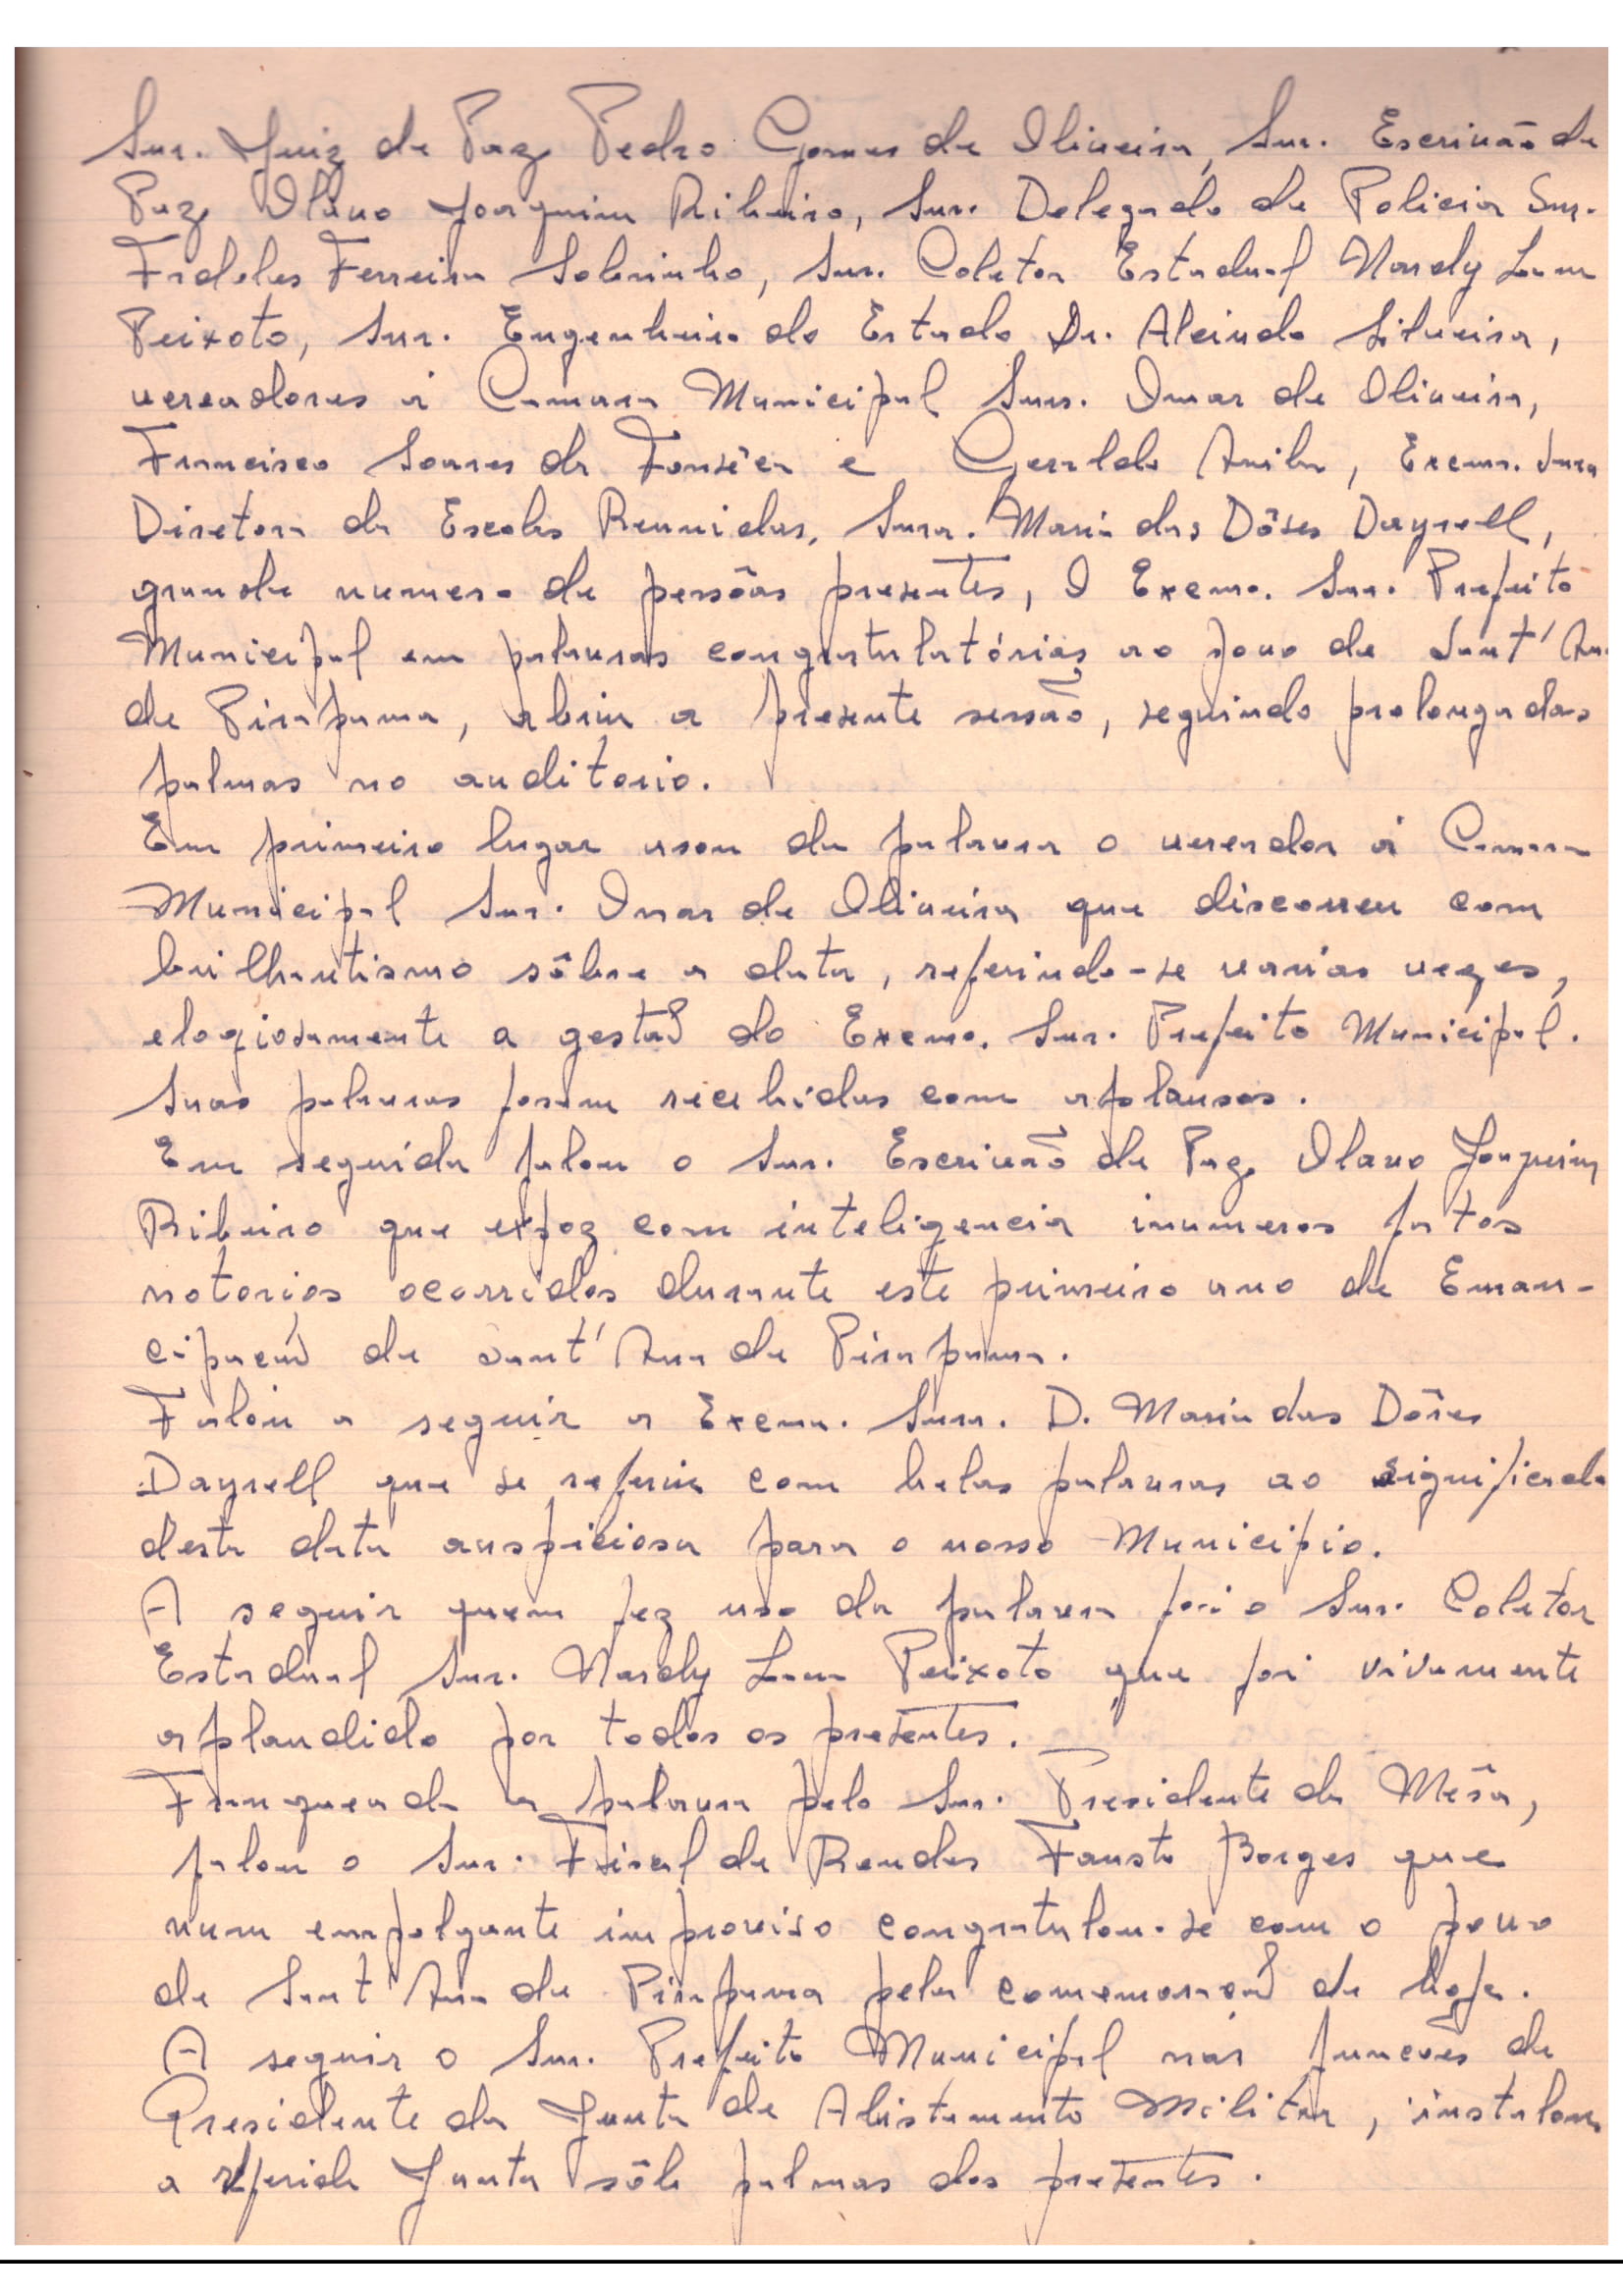 Snr. Juiz de Paz Pedro Gomes de Oliveira, Snr. Escrivão de
Paz Olavo Joaquim Ribeiro, Snr. Delegado de Policia Snr.
Fideles Ferreira Sobrinho, Snr. Coletor Estadual Nardy
Peixoto, Snr. Engenheiro do Estado Dr. Alcindo Silveira,
vereadores á Camara Municipal Snrs. Omar de Oliveira,
Francisco Soares da Fonsêca e Geraldo Avila, Exema. Snra
Diretora da Escolas Reunidas, Snra. Maria das Dôres Dayrell,
grande numero de pessôas presentes, O Exemo. Snr. Prefeito
Municipal em palavras congratulatórias ao povo de Sant'Ana
de Pirapama, abriu a presente sessão, seguindo prolongadas
palmas no auditorio.
Em primeiro lugar usou da palavra o vereador á Camara
Municipal Snr. Omar de Oliveira que discorreu com
brilhantismo sôbre a data, referindo-se varias vezes,
elogiosamente a gestão do Exemo. Snr. Prefeito Municipal.
Suas palavras foram recebidas com aplausos.
Em seguida falou o Snr. Escrivão de Paz Olavo Joaquim
Ribeiro que expoz com inteligencia inumeros fatos
notorios ocorridos durante este primeiro ano de Eman-
cipação de Sant'Ana de Pirapama.
Falou a seguir a Exema. Snra. D. Maria das Dôres
Dayrell que se referiu com belas palavras ao significado
desta data auspiciosa para o nosso Municipio.
A seguir quem fez uso da palavra foi o Snr. Coletor
Estadual Snr. Nardy Peixoto que foi vivamente
aplaudido por todos os presentes.
Franqueada a palavra pelo Snr. Presidente da Mêsa,
falou o Snr. Fiscal de Rendas Fausto Borges que
num empolgante improviso congratulou-se com o povo
de Sant'Ana de Pirapama pela comemoração de hoje.
A seguir o Snr. Prefeito Municipal nas funcões de
Presidente da Junta de Alistamento Militar, instalou
a referida Junta sôb palmas dos presentes.